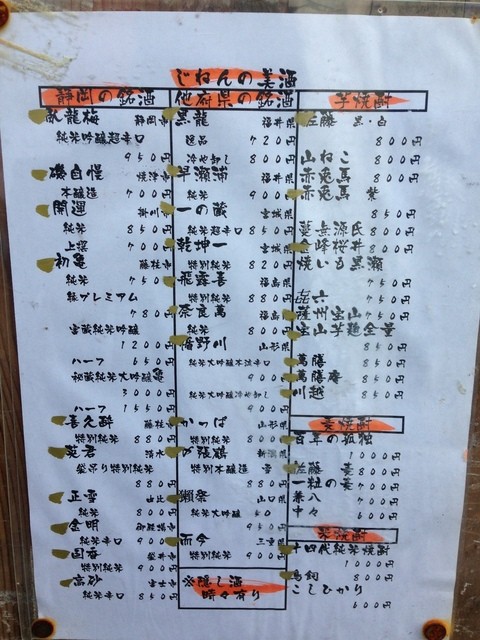 じねんの美酒
静岡の銘酒
臥龍梅 静岡市
純米吟醸超辛口
950円
磯自慢 焼津市
本醸造 700円
開運 掛川市
純米 850円
上撰 700円
初亀 藤枝市
純米 750円
純プレミアム
780円
雲蔵純米吟醸
1200円
ハーフ 650円
秘蔵純米大吟醸亀
3000円
ハーフ 1550円
喜久酔 藤枝市
特別純米 880円
英君 清水
袋吊り特別純米
880円
正雪 由比
純米 800円
金明 御殿場市
純米辛口 900円
国香 袋井市
特別純米 900円
高砂 富士市
純米辛口 850円
他府県の銘酒
黒龍 福井県
逸品 720円
冷や卸し 800円
早瀬浦 福井県
純米 900円
一の蔵 宮城県
純米超辛口 850円
乾坤一 宮城県
特別純米 820円
飛露喜 福島県
特別純米
奈良萬 福島県
純米 800円
山形県
純米大吟醸本辛口
900円
純米大吟醸冷や卸し
900円
かっぱ 山形県
特別純米 800円
〆張鶴 新潟県
特別本醸造 雪
880円
獺祭 山口県
純米大吟醸 50
950円
而今 三重県
特別純米 900円
※隠し酒
時々有り
芋焼酎
佐藤 黒・白
800円
山ねこ 800円
赤兎馬 800円
赤兎馬 紫
850円
甕岳源氏 800円
金峰桜井 800円
焼いも黒瀬
750円
㐂六 750円
薩州宝山 750円
宝山芋麹全量
850円
萬膳 850円
萬膳庵 850円
川越 850円
麦焼酎
百年の孤独
1000円
佐藤 麦 800円
一粒の麦 700円
兼八 700円
中々 600円
米焼酎
十四代純米焼酎
1000円
鳥飼 800円
こしひかり
600円